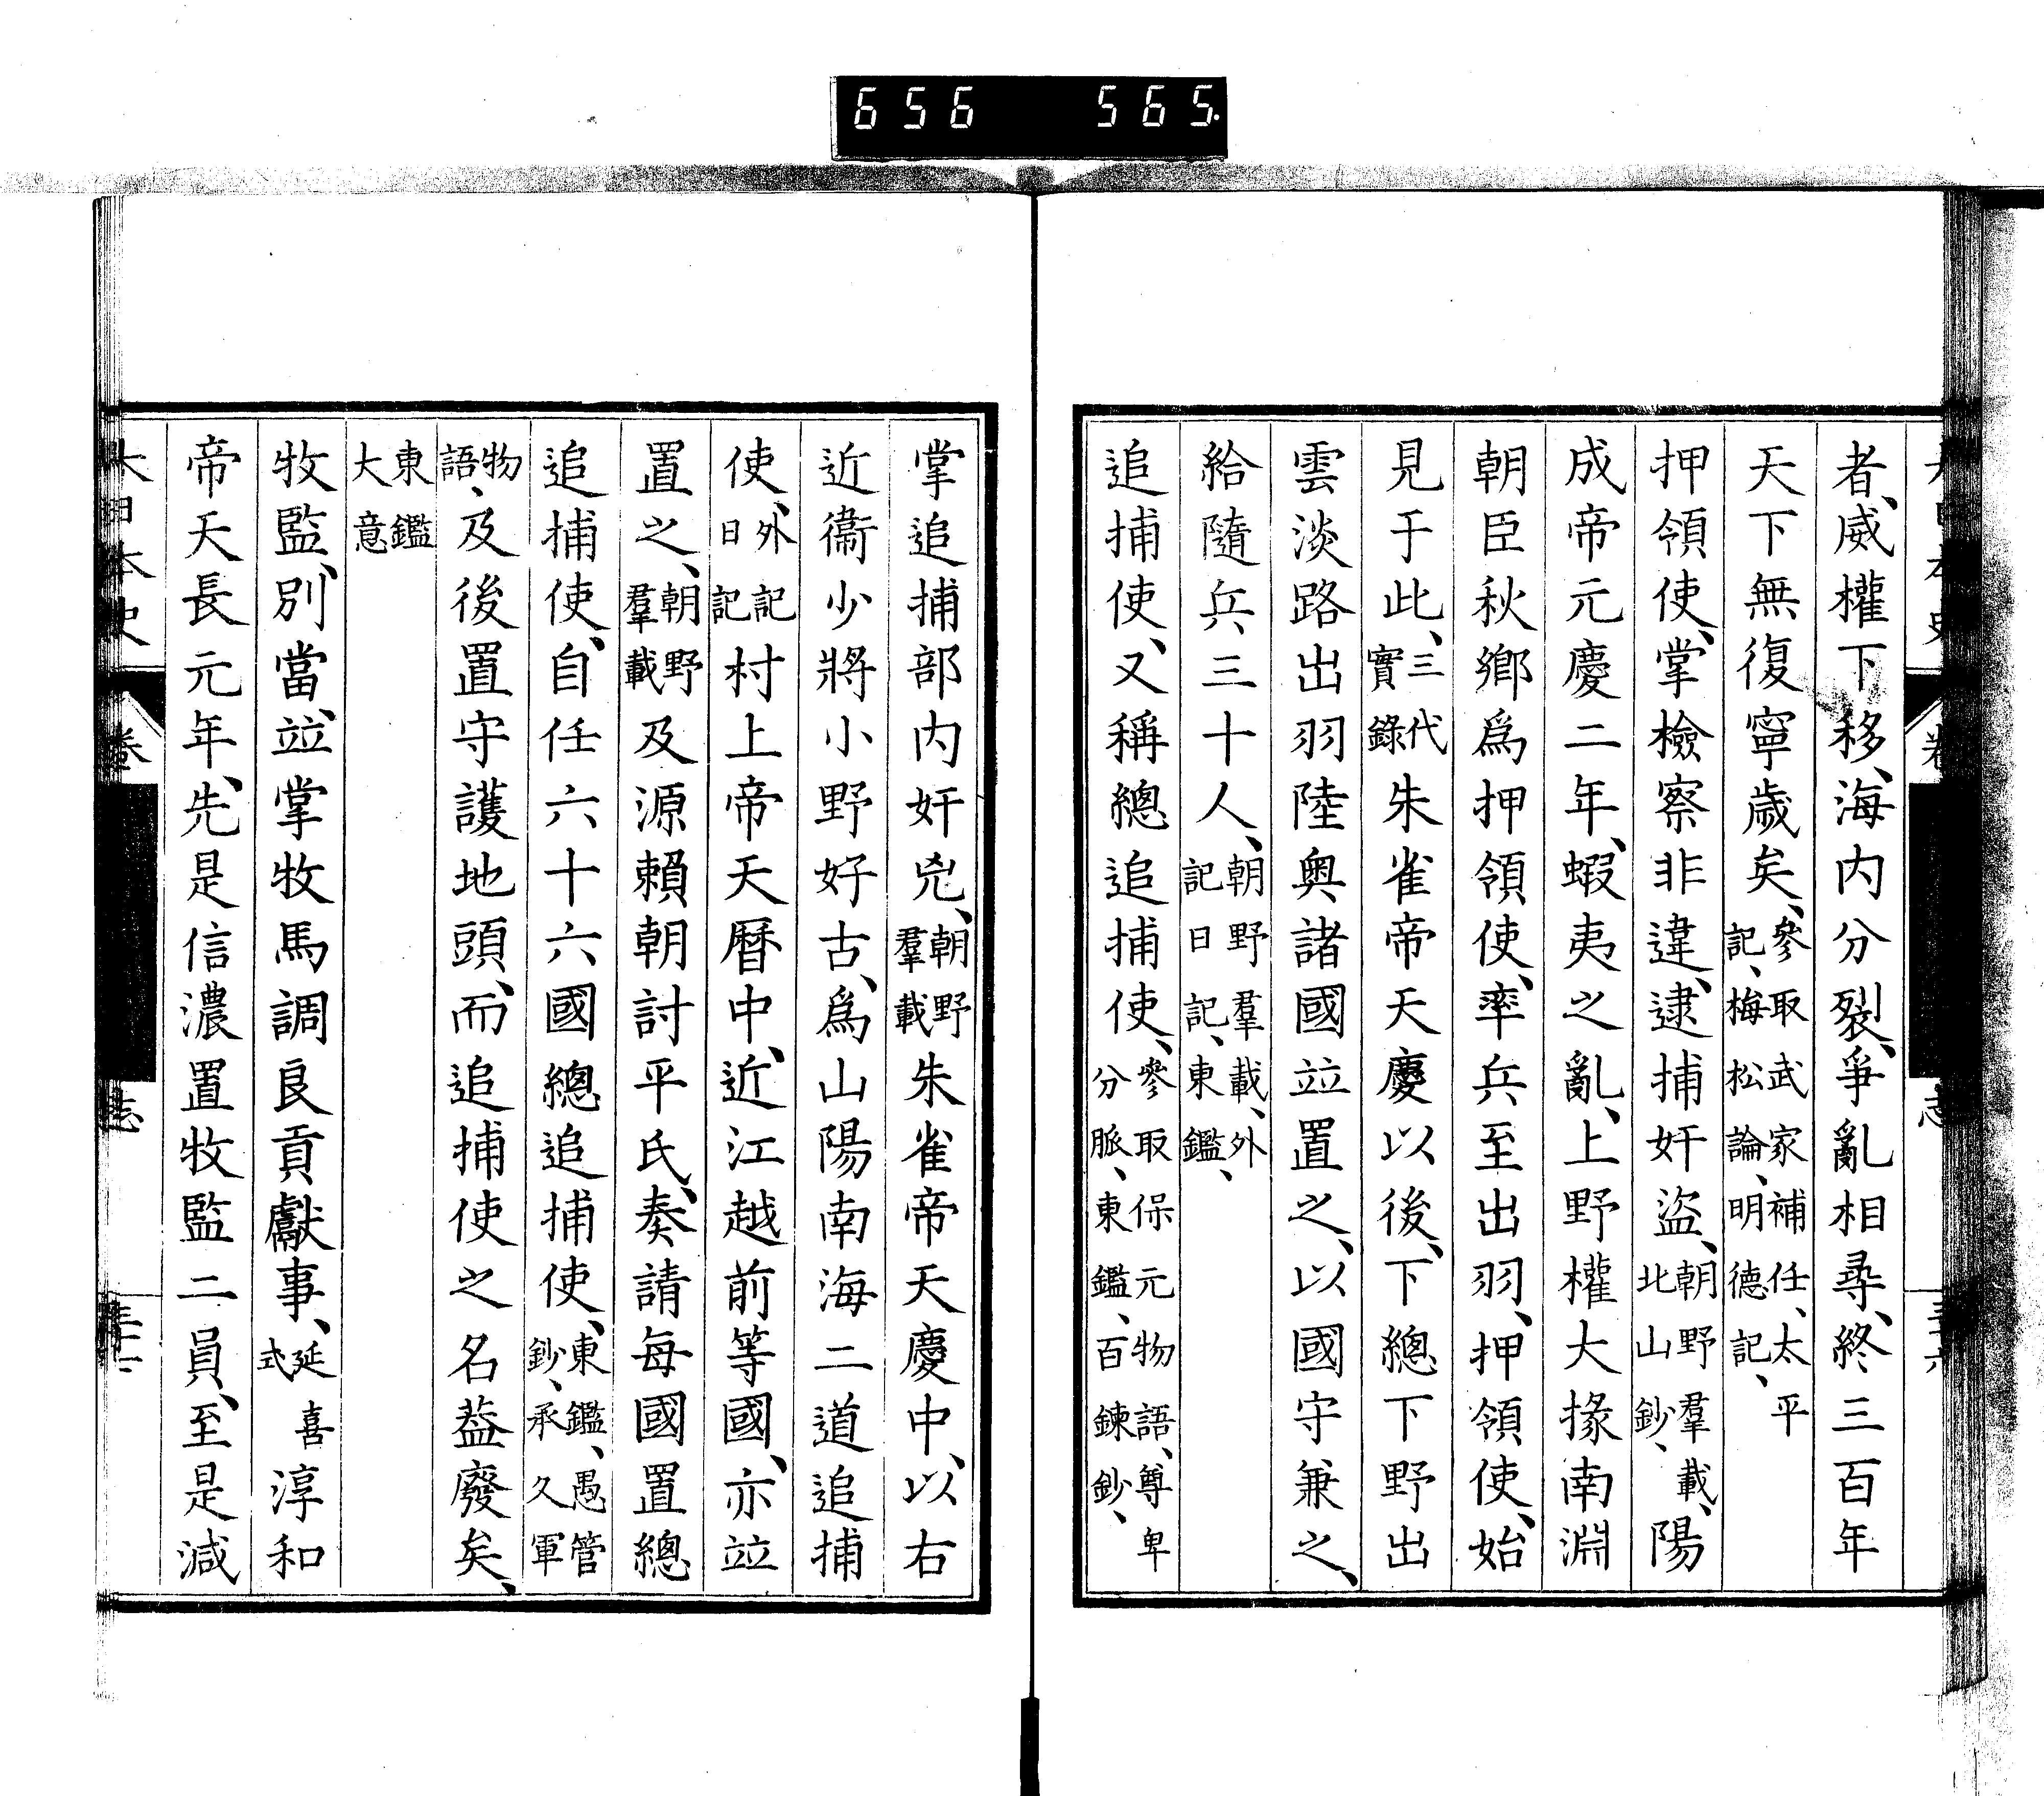 656 565.
者、威權下移、海内分裂、爭亂相尋、終三百年
天下無復寧歳矣、參取武家補任、太平記、梅松論、明德記、
押領使、掌檢察非違、逮捕奸盜、朝野羣載、北山鈔、陽
成帝元慶二年、蝦夷之亂、上野權大掾南淵
朝臣秋鄉爲押領使、率兵至出羽、押領使、始
見于此、三代實錄朱雀帝天慶以後、下總下野出
雲淡路出羽陸奥諸國竝置之、以國守兼之、
給隨兵三十人、朝野羣載、外記日記、東鑑、
追捕使、又稱總追捕使、參取保元物語、尊卑分脈、東鑑、百鍊鈔、
掌追捕部内奸兇、朝野羣載朱雀帝天慶中、以右
近衞少將小野好古、爲山陽南海二道追捕
使、外記日記村上帝天曆中、近江越前等國、亦竝
置之、朝野羣載及源賴朝討平氏、奏請每國置總
追捕使、自任六十六國總追捕使、東鑑、愚管鈔、承久軍
物語、及後置守護地頭、而追捕使之名葢廢矣、
東鑑大意
牧監、別當、竝掌牧馬調良貢獻事、延喜式淳和
帝天長元年、先是信濃置牧監二員、至是減
大日本史 卷 志